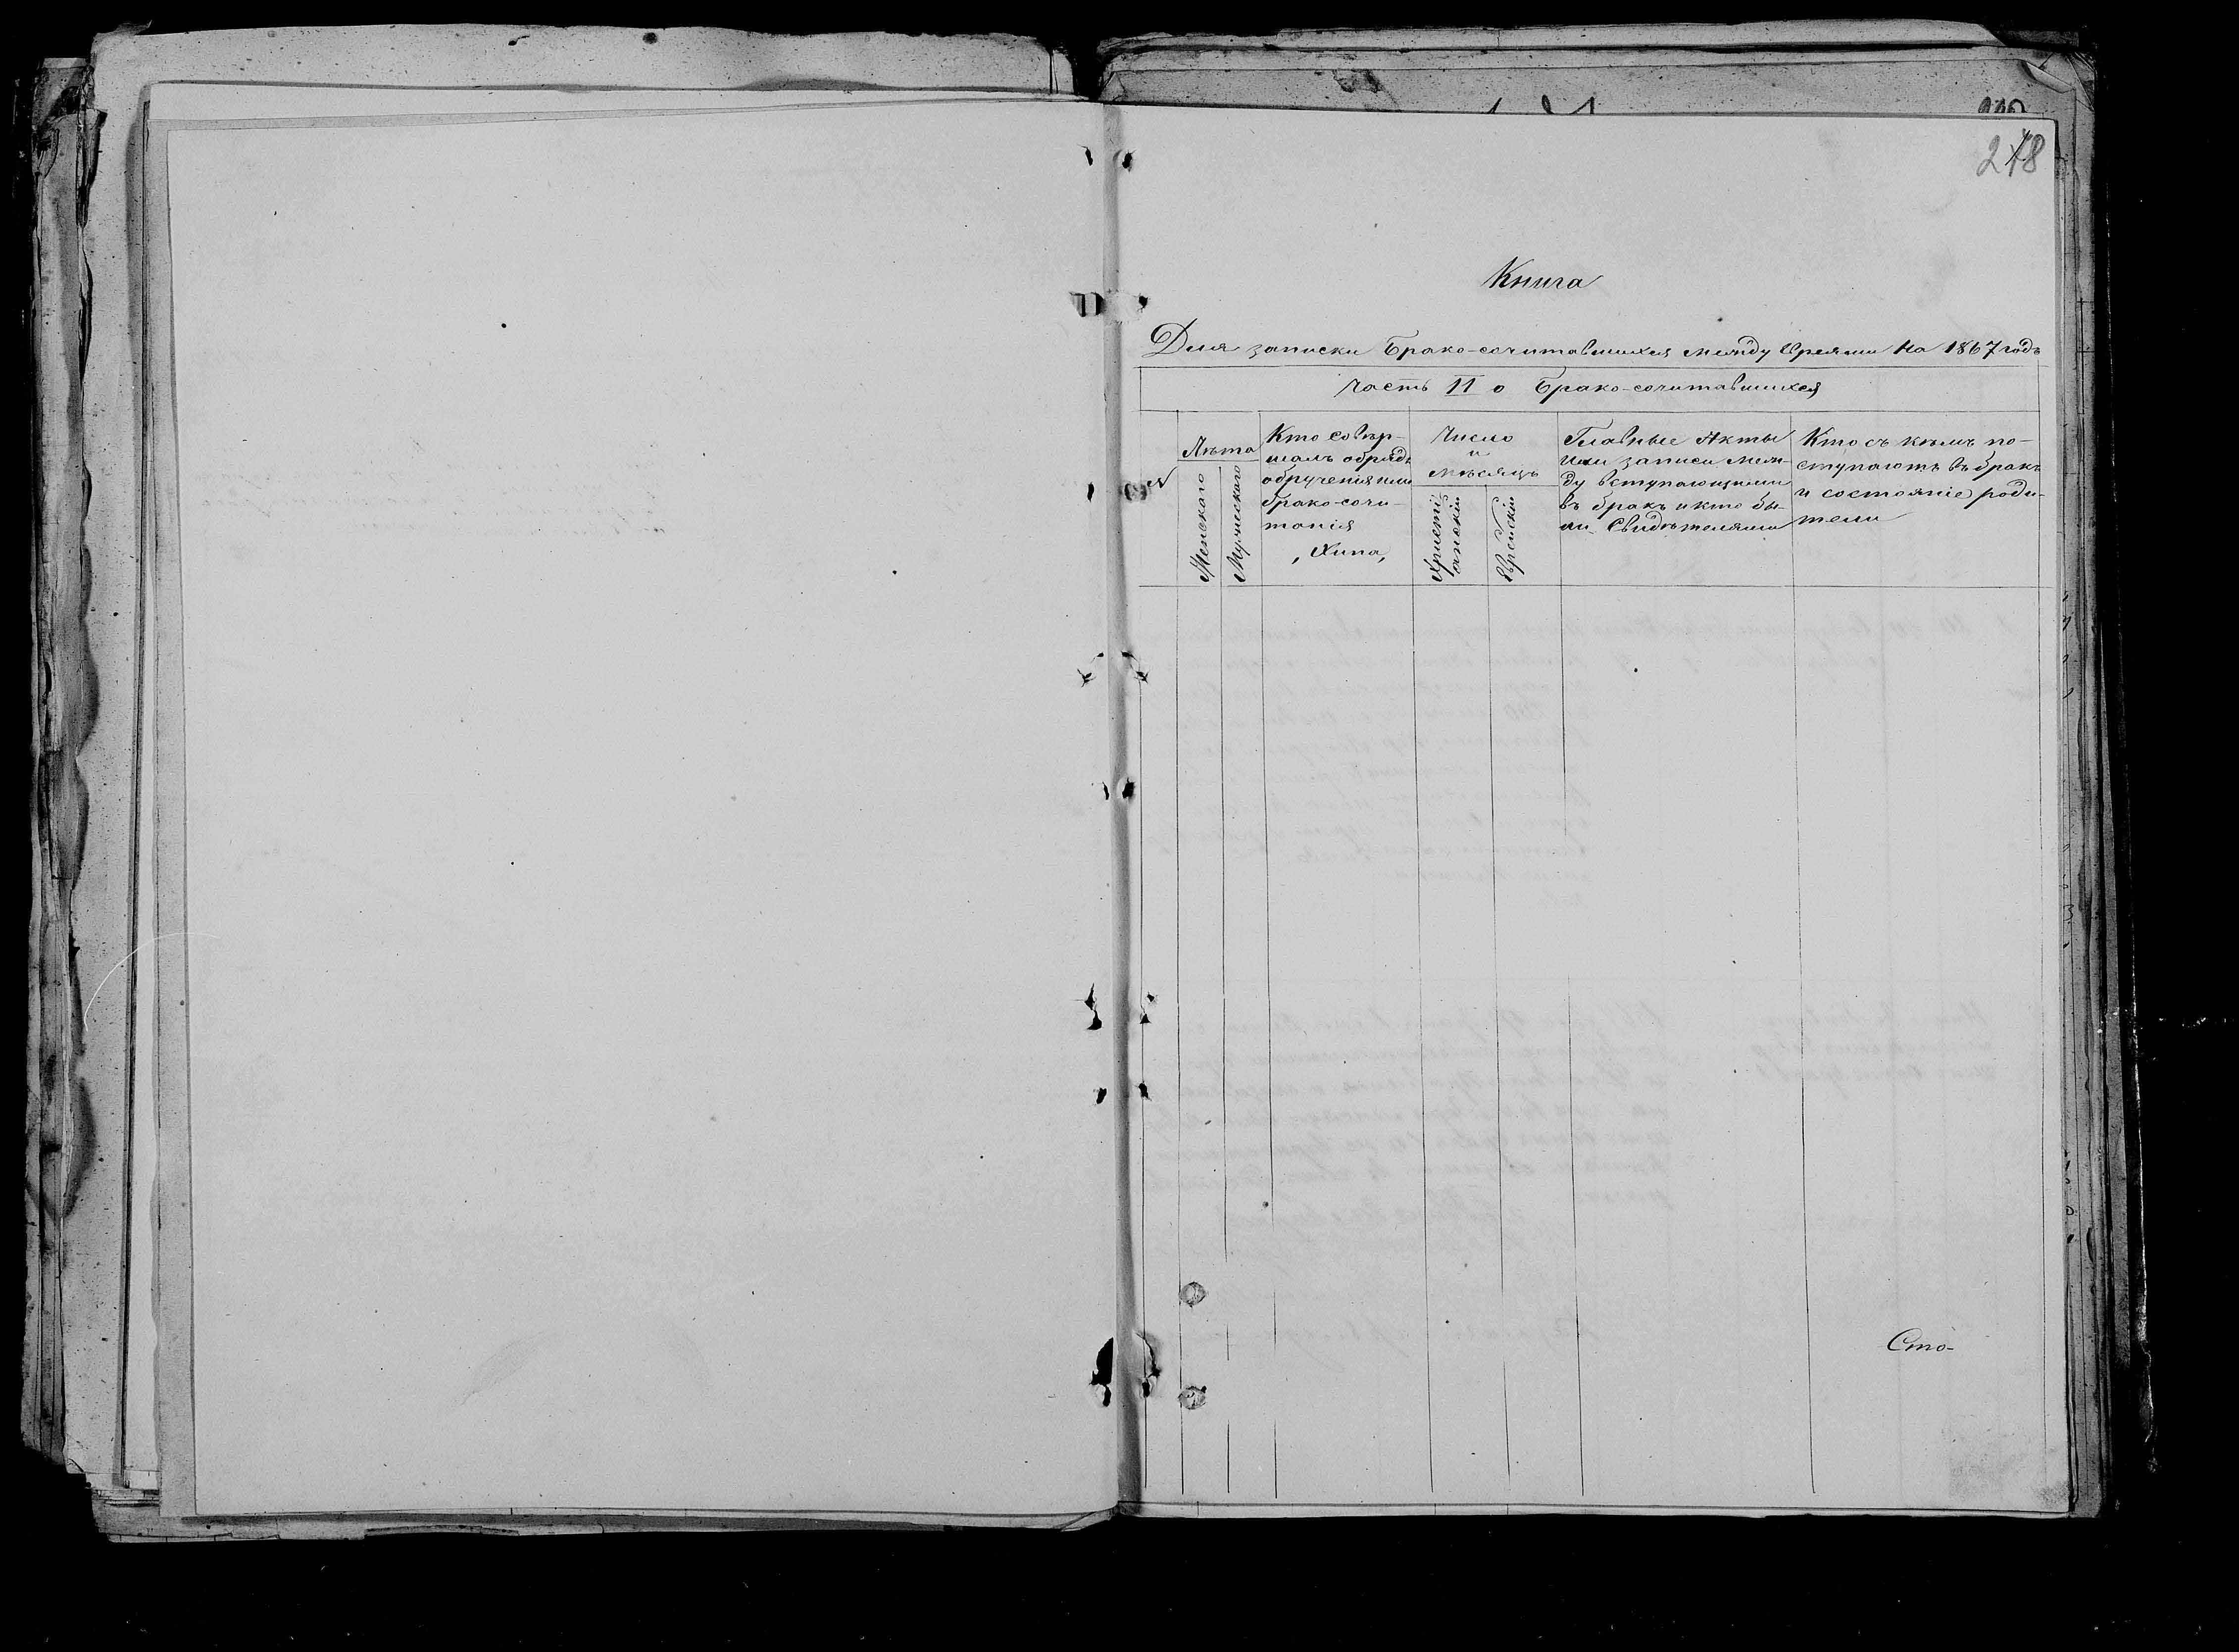 278
Книга
Для записки Брако-сочитавшихся между Евреями На 1867 годъ
Часть II о Брако-сочитавшихся
№
Лѣта
Женскаго
Мужескаго
Кто совер-
шалъ обрядъ
обрученія или
брако-сочи-
танія
, Хипа,
Число
и
Мѣсяцъ
Христі
анскій
Еврейскій
Главные Акты
или записи меж-
ду вступающими
въ бракъ и кто бы-
ли Свидѣтелями
Кто съ кѣмъ по-
ступаютъ въ бракъ
и состояніе роди-
тели
Сто-